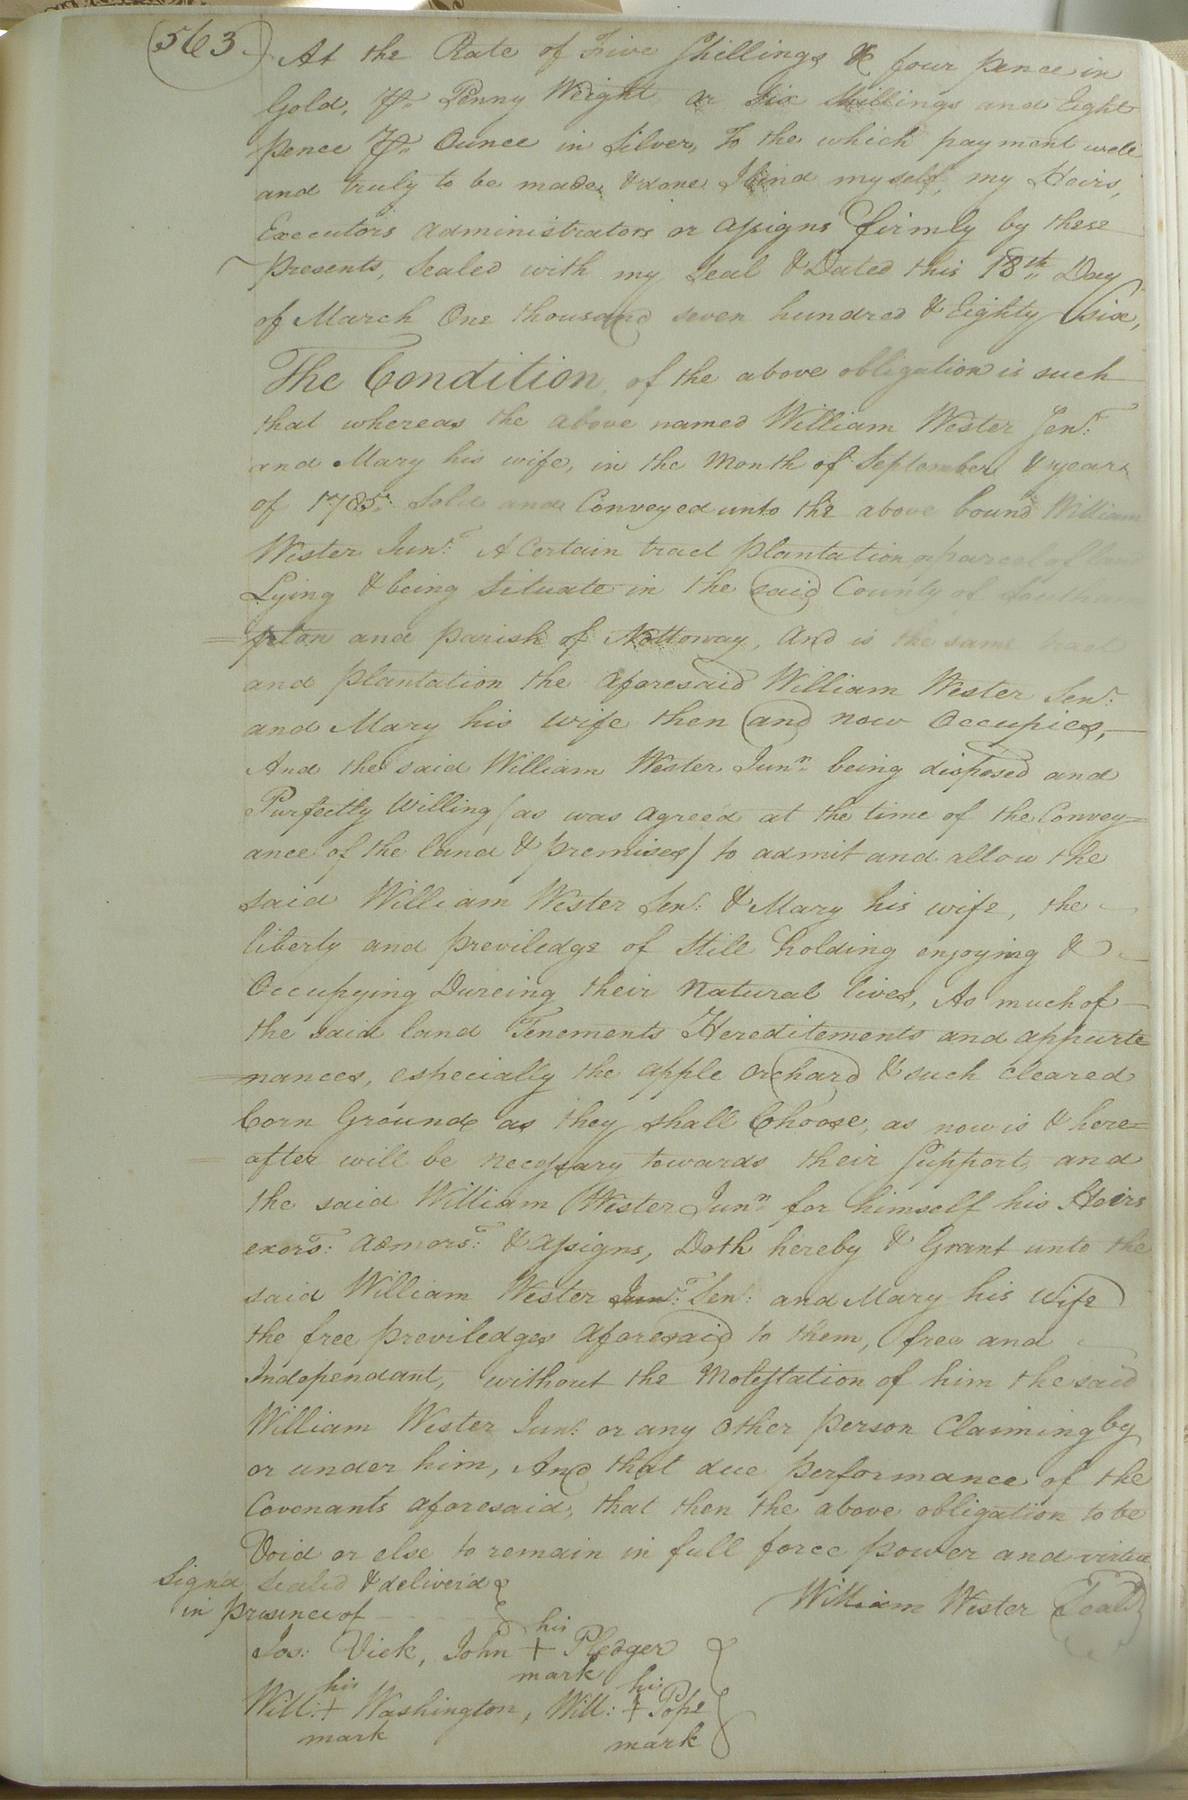 563
At the Rate of Five Shillings & four pence in
Gold, Pr. Penny Weight or Six Shillings and Eight
pence Pr. Ounce in Silver, To the which payment well
and truly to be made & done I bind myself, my Heirs,
Executors administrators or assigns firmly by these
presents, Sealed with my Seal & Dated this 18th Day
of March One thousand seven hundred & Eighty Six,
The Condition of the above obligation is such
that whereas the above named William Wester Senr.
and Mary his wife, in the Month of September & year
of 1785 Sold and Conveyed unto the above bound William
Wester Junr. A Certain tract plantation or parcel of land
Lying & being Situate in the said County of Southam
pton and parish of Nottoway, And is the same tract
and plantation the aforesaid William Wester Senr.
and Mary his wife then and now Occupies,
And the said William Wester Junr. being disposed and
Purfectly Willing (as was agreed at the time of the Convey=
ance of the land & premises) to admit and allow the
said William Wester Senr. & Mary his wife, the
liberty and previledge of Still holding enjoying &
Occupying Dureing their natural lives, As much of
the said land Tenements Hereditements and appurte
nances, especially the apple orchard & such cleared
Corn Ground as they shall Choose, as now is & here=
after will be necessary towards their Support, and
the said William Wester Junr. for himself his Heirs
exors. admors. & assigns, Doth hereby & Grant unto the
said William Wester Junr. Senr. and Mary his Wife
the free previledges aforesaid to them, free and
Independant, without the Molestation of him the said
William Wester Junr. or any other person Claiming by
or under him, And that due performance of the
Covenants aforesaid, that then the above obligation to be
Void or else to remain in full force power and virtue
Sign'd Sealed & deliver'd
in presence of
William Wester Seal
his
Jos: Vick, John + Pledger
mark
his his
Will: + Washington, Will: + Pope
mark mark